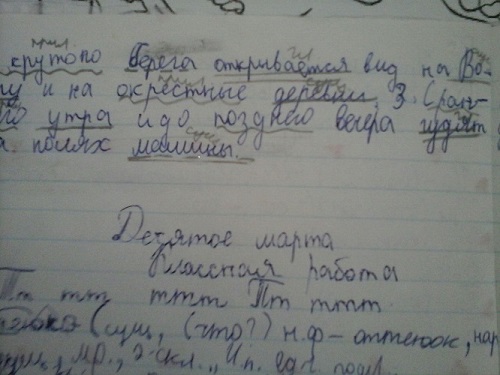 прил гл
крутого берега открывается вид на Во-
прил сущ
гу и на окрестные деревни. 3. С ран-
го утра и до позднего вечера гудят
сущ
полях машины.
Десятое марта
Классная работа
Пт тт тттт Пт тттт
(сущ., (что?) н.ф – оттенок, нар
м.р., 2 скл., И.п. ед.ч.